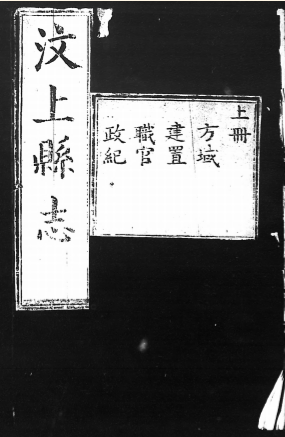 汶上縣志
上冊
方域
建置
職官
政紀